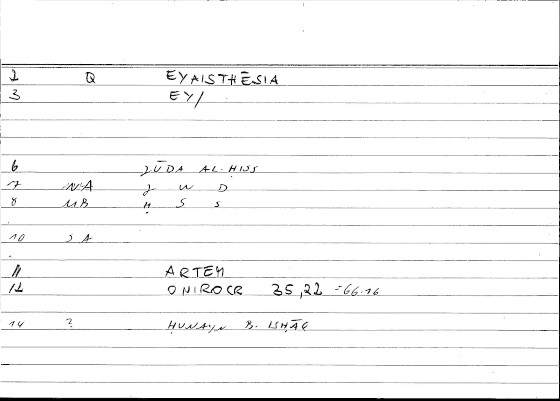 2 Q EYAISTHĒSIA
3 EY/
6 ǦŪDA AL-ḤISS
7 NA Ǧ W D
8 MB Ḥ S S
10 JA
11 ARTEM
12 ONIROCR 35,22 =66.16
14 ? ḤUNAYN B. ISḤĀQ